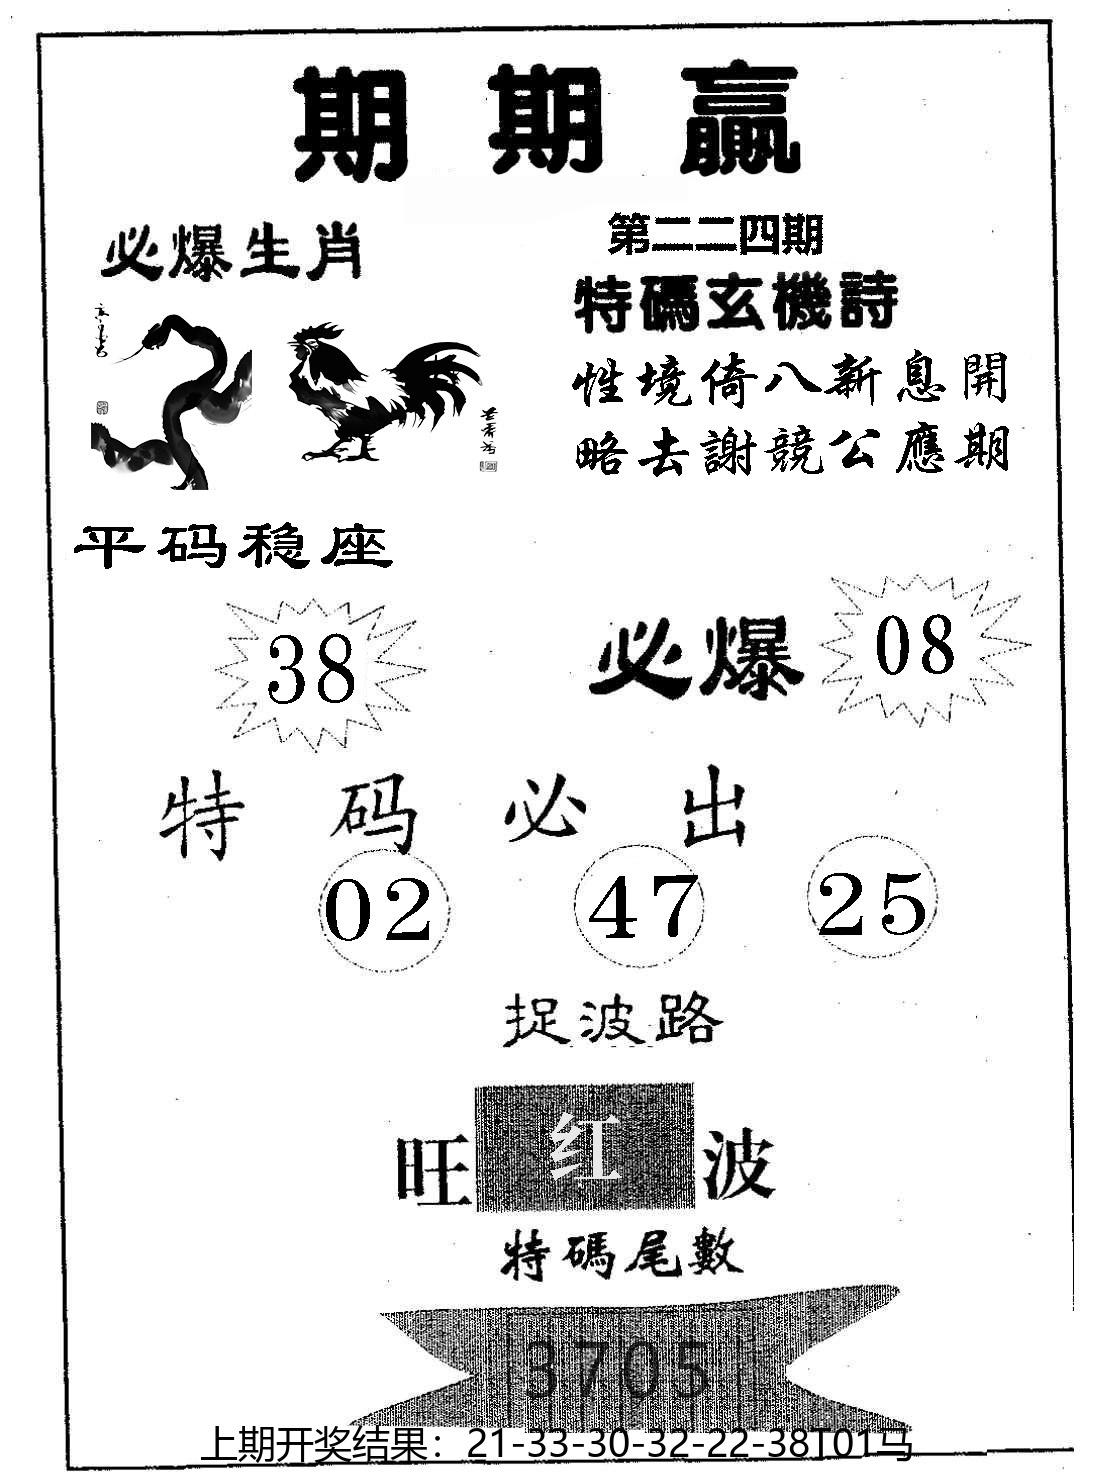 期期贏
必爆生肖
第二二四期
特碼玄機詩
性境倚八新息開
略去謝競公應期
平码稳座
38
必爆
08
特码必出
02 47 25
捉波路
旺 红 波
特碼尾數
3705
上期开奖结果：21-33-30-32-22-38T01马